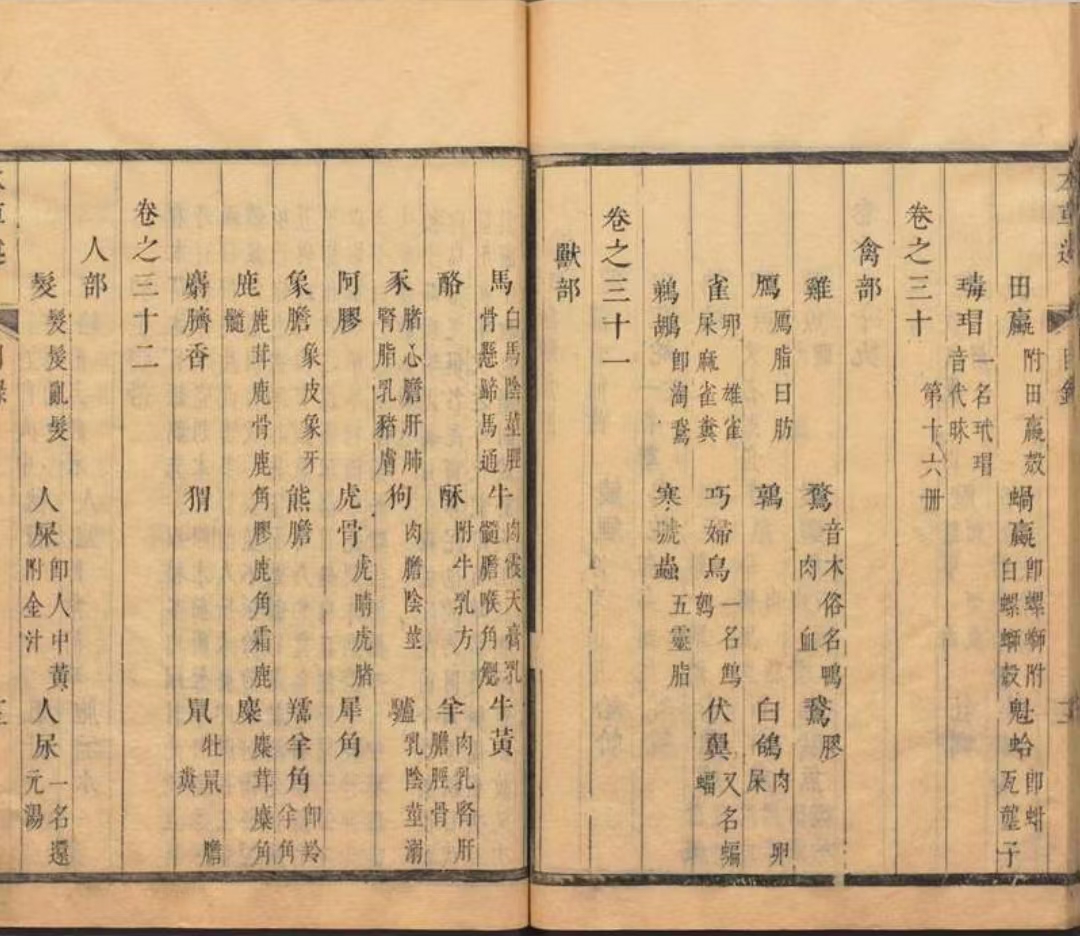 田蠃 附田蠃殼 蝸蠃 卽螺螄附白螺螄殼 魁蛤 卽蚶瓦壟子
瑇瑁 一名玳瑁音代昧
第十六册
卷之三十
禽部
雞 鶩 音木俗名鴨肉血 鵞 膠
鴈 鴈脂曰肪 鶉 白鴿 肉屎卵
雀 卵雄雀屎麻雀糞 巧婦鳥 一名鷦鷯 伏翼 又名蝙蝠
鵜鶘 卽淘鵞 寒號蟲 五靈脂
卷之三十一
獸部
馬 白馬陰莖脛骨懸蹄馬通 牛 肉霞天膏乳髓膽喉角䚡 牛黃
酪 酥 附牛乳方 羊 肉乳腎肝膽脛骨
豕 豬心膽肝肺腎脂乳豬膚 狗 肉膽陰莖 驢 乳陰莖溺
阿膠 虎骨 虎睛虎豬 犀角
象膽 象皮象牙 熊膽 羚羊角 卽羚羊角
鹿 鹿茸鹿骨鹿角膠鹿角霜鹿髓 麋 麋茸麋角
麝臍香 猬 鼠 牡鼠膽糞
卷之三十二
人部
髮 髮髲亂髮 人屎 卽人中黃附金汁 人尿 一名還元湯